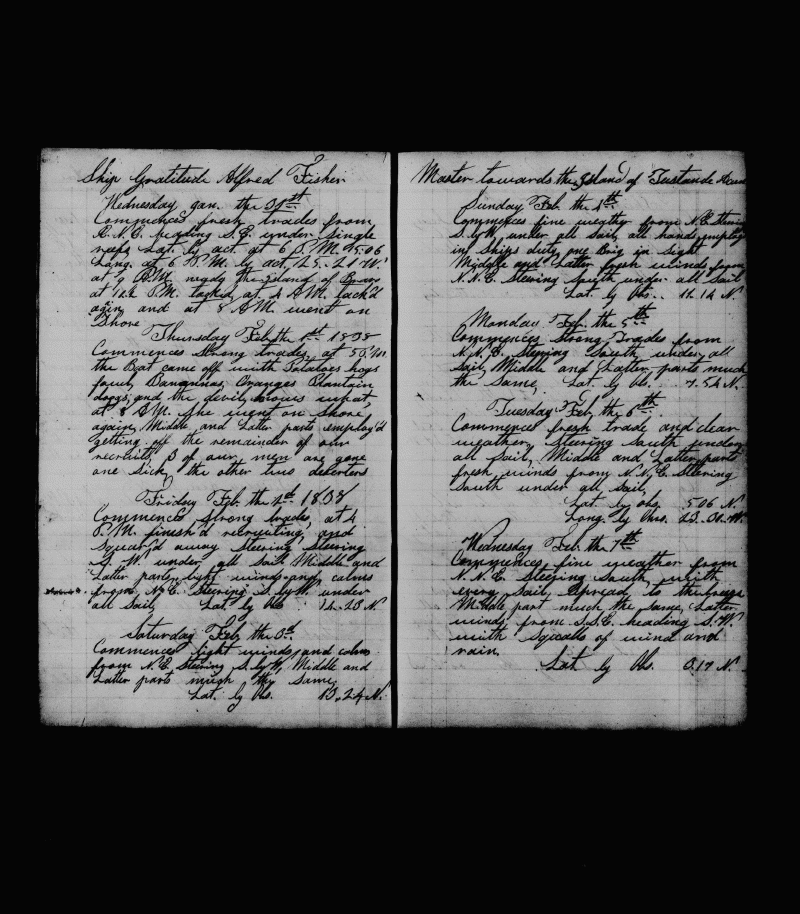 Ship Gratitude Alfred Fisher
Wednesday jan. the 31st
Commences fresh trades from
E.N.E. heading S.E. under single
reefs Lat. by act. at 6 P.M. 15.06
Long. at 6 P.M. by act. 25.21 W.
at 9 P.M. near the island of Brava
at 12 P.M. tacked at 4 A.M. tack'd
again and at 8 A.M. went on
Shore
Thursday Feb the 1st 1838
Commences Strong trades, at
the Boat came off with Potatoes hogs
fowl, Bananas, Oranges Plantain
dogs, and the devil knows what
at 8 A.M. she went on Shore
again, Middle, and Latter parts employ'd
getting off the remainder of our
recruits, 3 of our men are gone
one Sick, the other two deserters
Friday Feb. the 2d 1838
Commences Strong trades, at 4
P.M. finesh'd recruiting, and
Squar'd away Steering Steering
S.W. under all Sail Middle and
Latter parts light winds and calms
from N.E. Steering S.byW. under
all Sail, Lat by Obs 14.23 N
Saturday Feb, the 3d
Commences light winds, and calms
from N.E. Steering S.byW. Middle and
Latter parts much the Same,
Lat. by Obs. 13.24 N.
Master towards the Island of Tustande
Sunday Feb. the 4th
Commences fine weather from N.E. Steering
S.byW. under all Sail, all hands employ
in Ships duty, one Brig in sight
Middle and Latter fresh winds from
N.N.E. Steering South under all Sail
Lat. by Obs. 11.14 N.
Monday Feb. the 5th
Commences Strong Trades from
N.N.E. Steering South, under all
Sail, Middle and Latter parts much
the Same, Lat. by Obs. 7.54 N.
Tuesday Feb, the 6th
Commences fresh trade and clear
weather, Steering South under
all Sail, Middle and Latter parts
fresh winds from N.N.E. Steering
South under all Sail,
Lat. by obs. 5.06 N.
Long. by Obs. 23.30 W.
Wednesday Feb. the 7th
Commences fine weather from
N.N.E. Steering South, with
every Sail spread to the breeze
Middle part much the Same, Latter
winds from S.S.E. heading S.W.
with Squalls of wind and
rain,
Lat by Obs. 3.17 N.